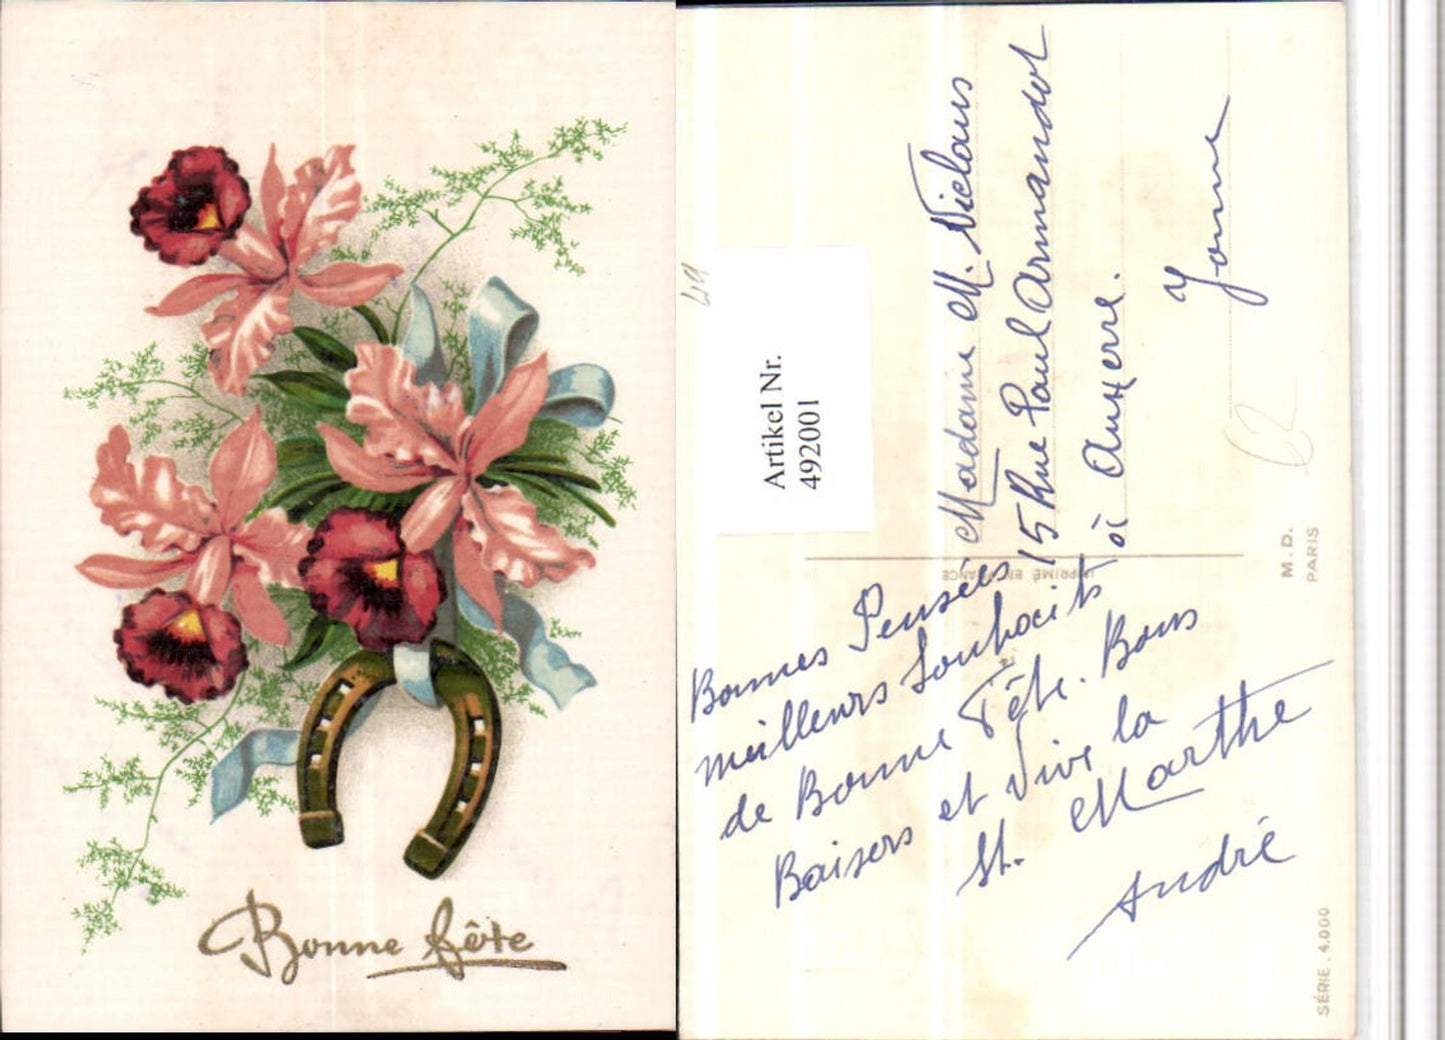 Bonne fête
49
Artikel Nr.
492001
Bonnes Pensées
meilleurs Souhaits
de Bonne Fête. Bons
Baisers et Vive la
St. Marthe
André
Madame M.
15 Rue Paul Armandot
à Auxerre.
Yonne
62
IMPRIMÉ EN FRANCE
M. D.
PARIS
SÉRIE . 4.000